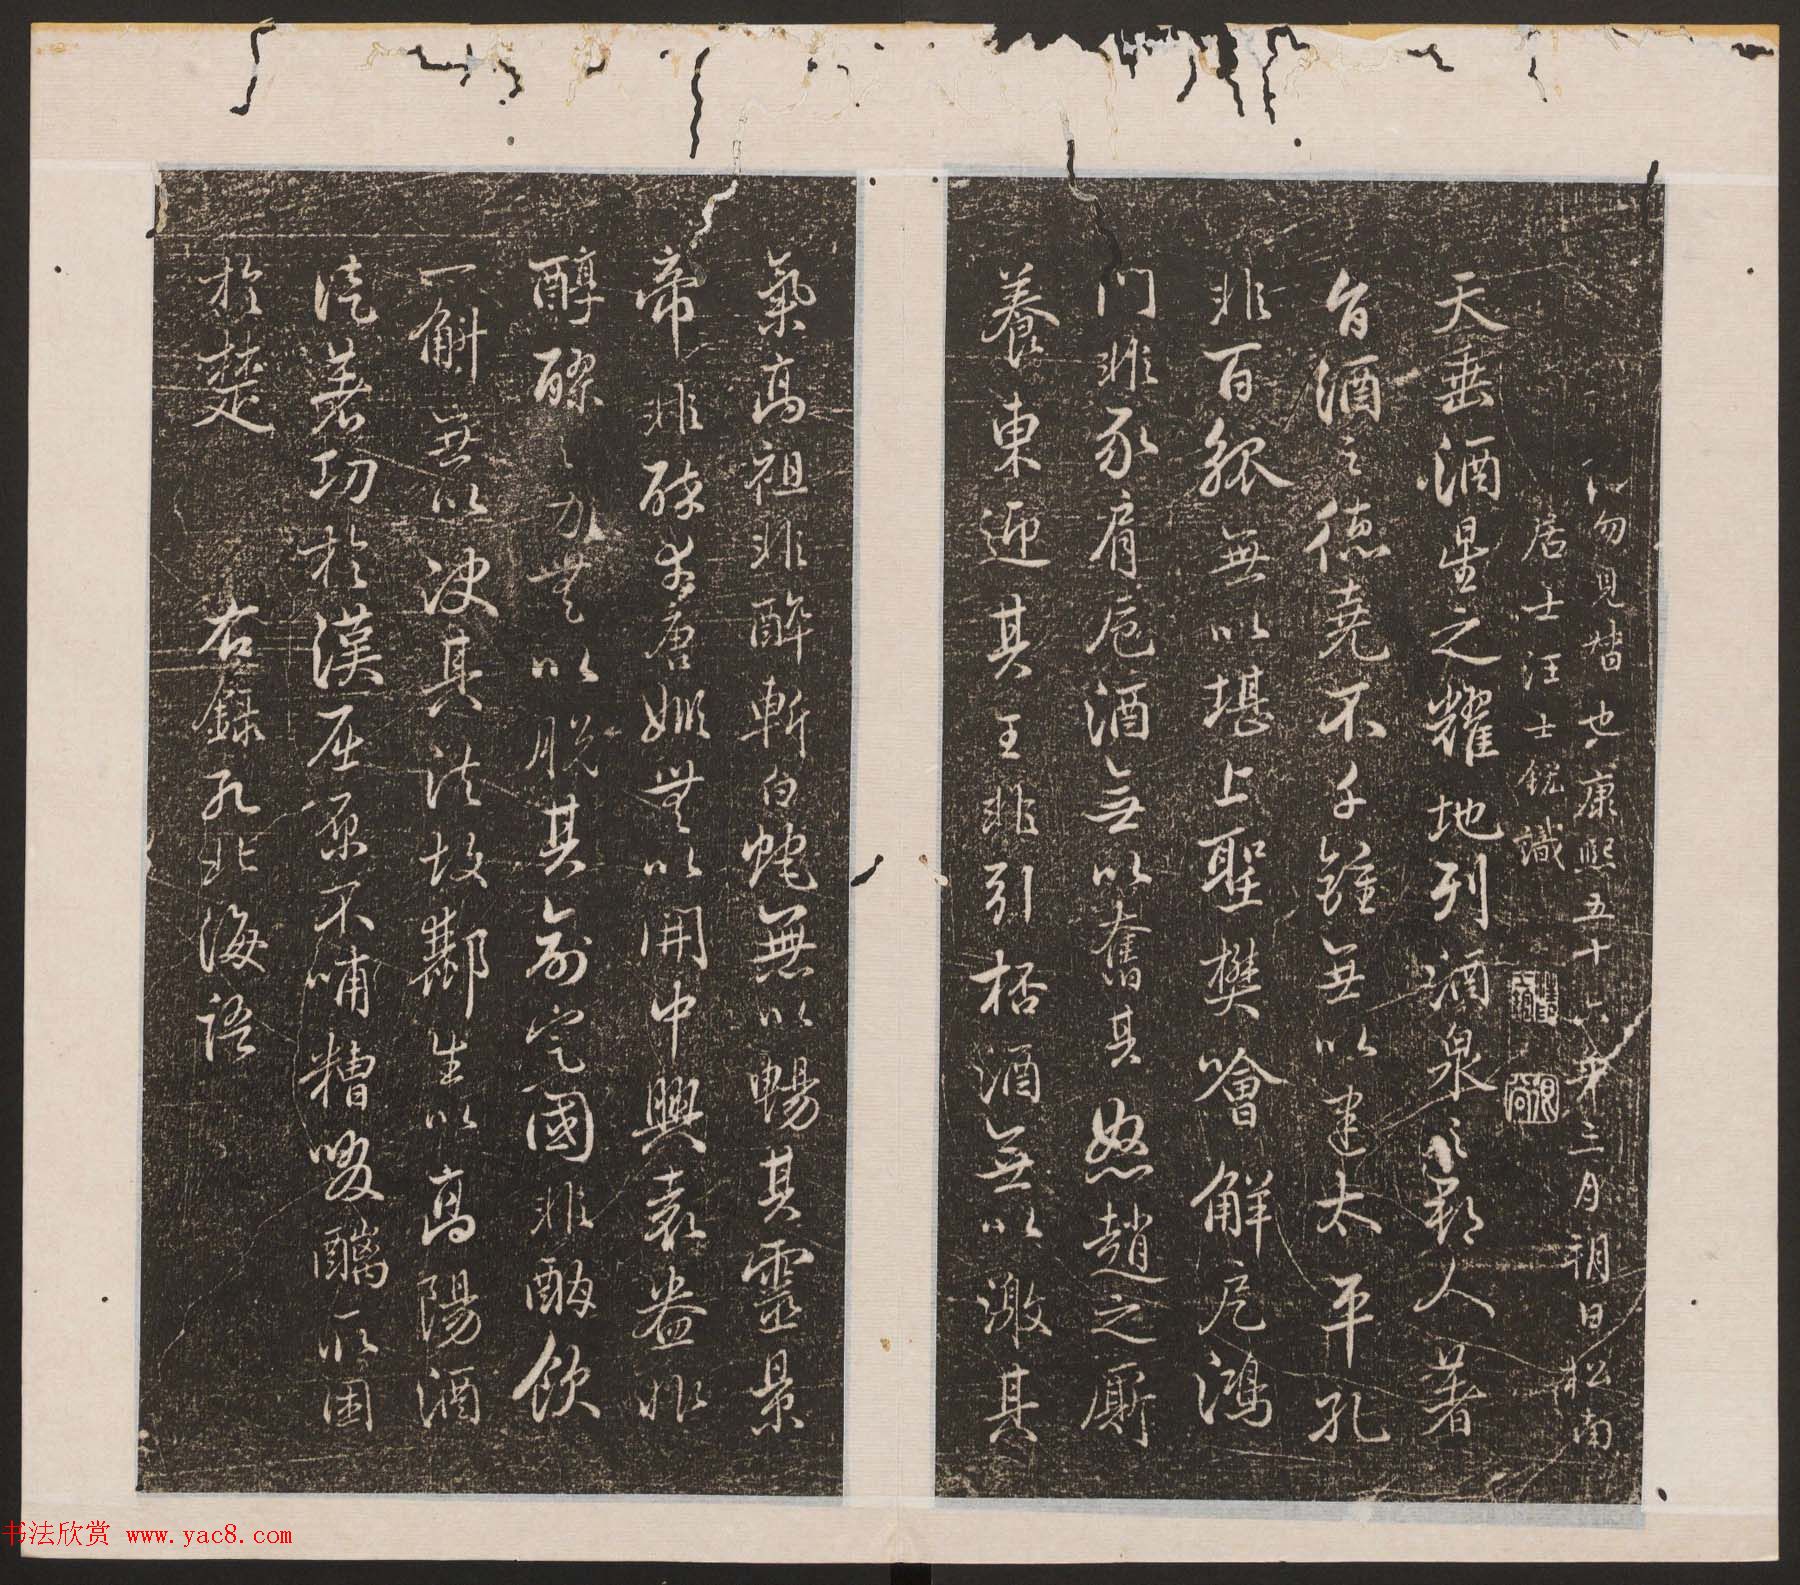 勿見替也康熙五十六年三月朔日松南
居士汪士鋐識
天垂酒星之耀地列酒泉之郡人著
旨酒之德堯不千鍾無以建太平孔
非百觚無以堪上聖樊噲解卮鴻
門非豕肩卮酒無以奮其怒趙之廝
養東迎其王非引桮酒無以激其
氣高祖非醉斬白蛇無以暢其靈景
帝非醉幸唐姬無以開中興袁盎非
醇醪之力無以脫其命定國非酣飲
一斛無以決其法故酈生以高陽酒
徒著功於漢屈原不哺糟啜醨取困
於楚 右錄孔北海語
书法欣赏 www.yac8.com